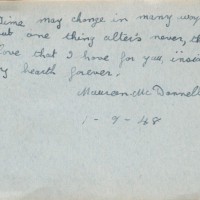 Time may change in many ways
but one thing alter's never, the
love that I have for you, inse
my hearth forever.
Maureen Mc Donnell
1 - 9 - 48